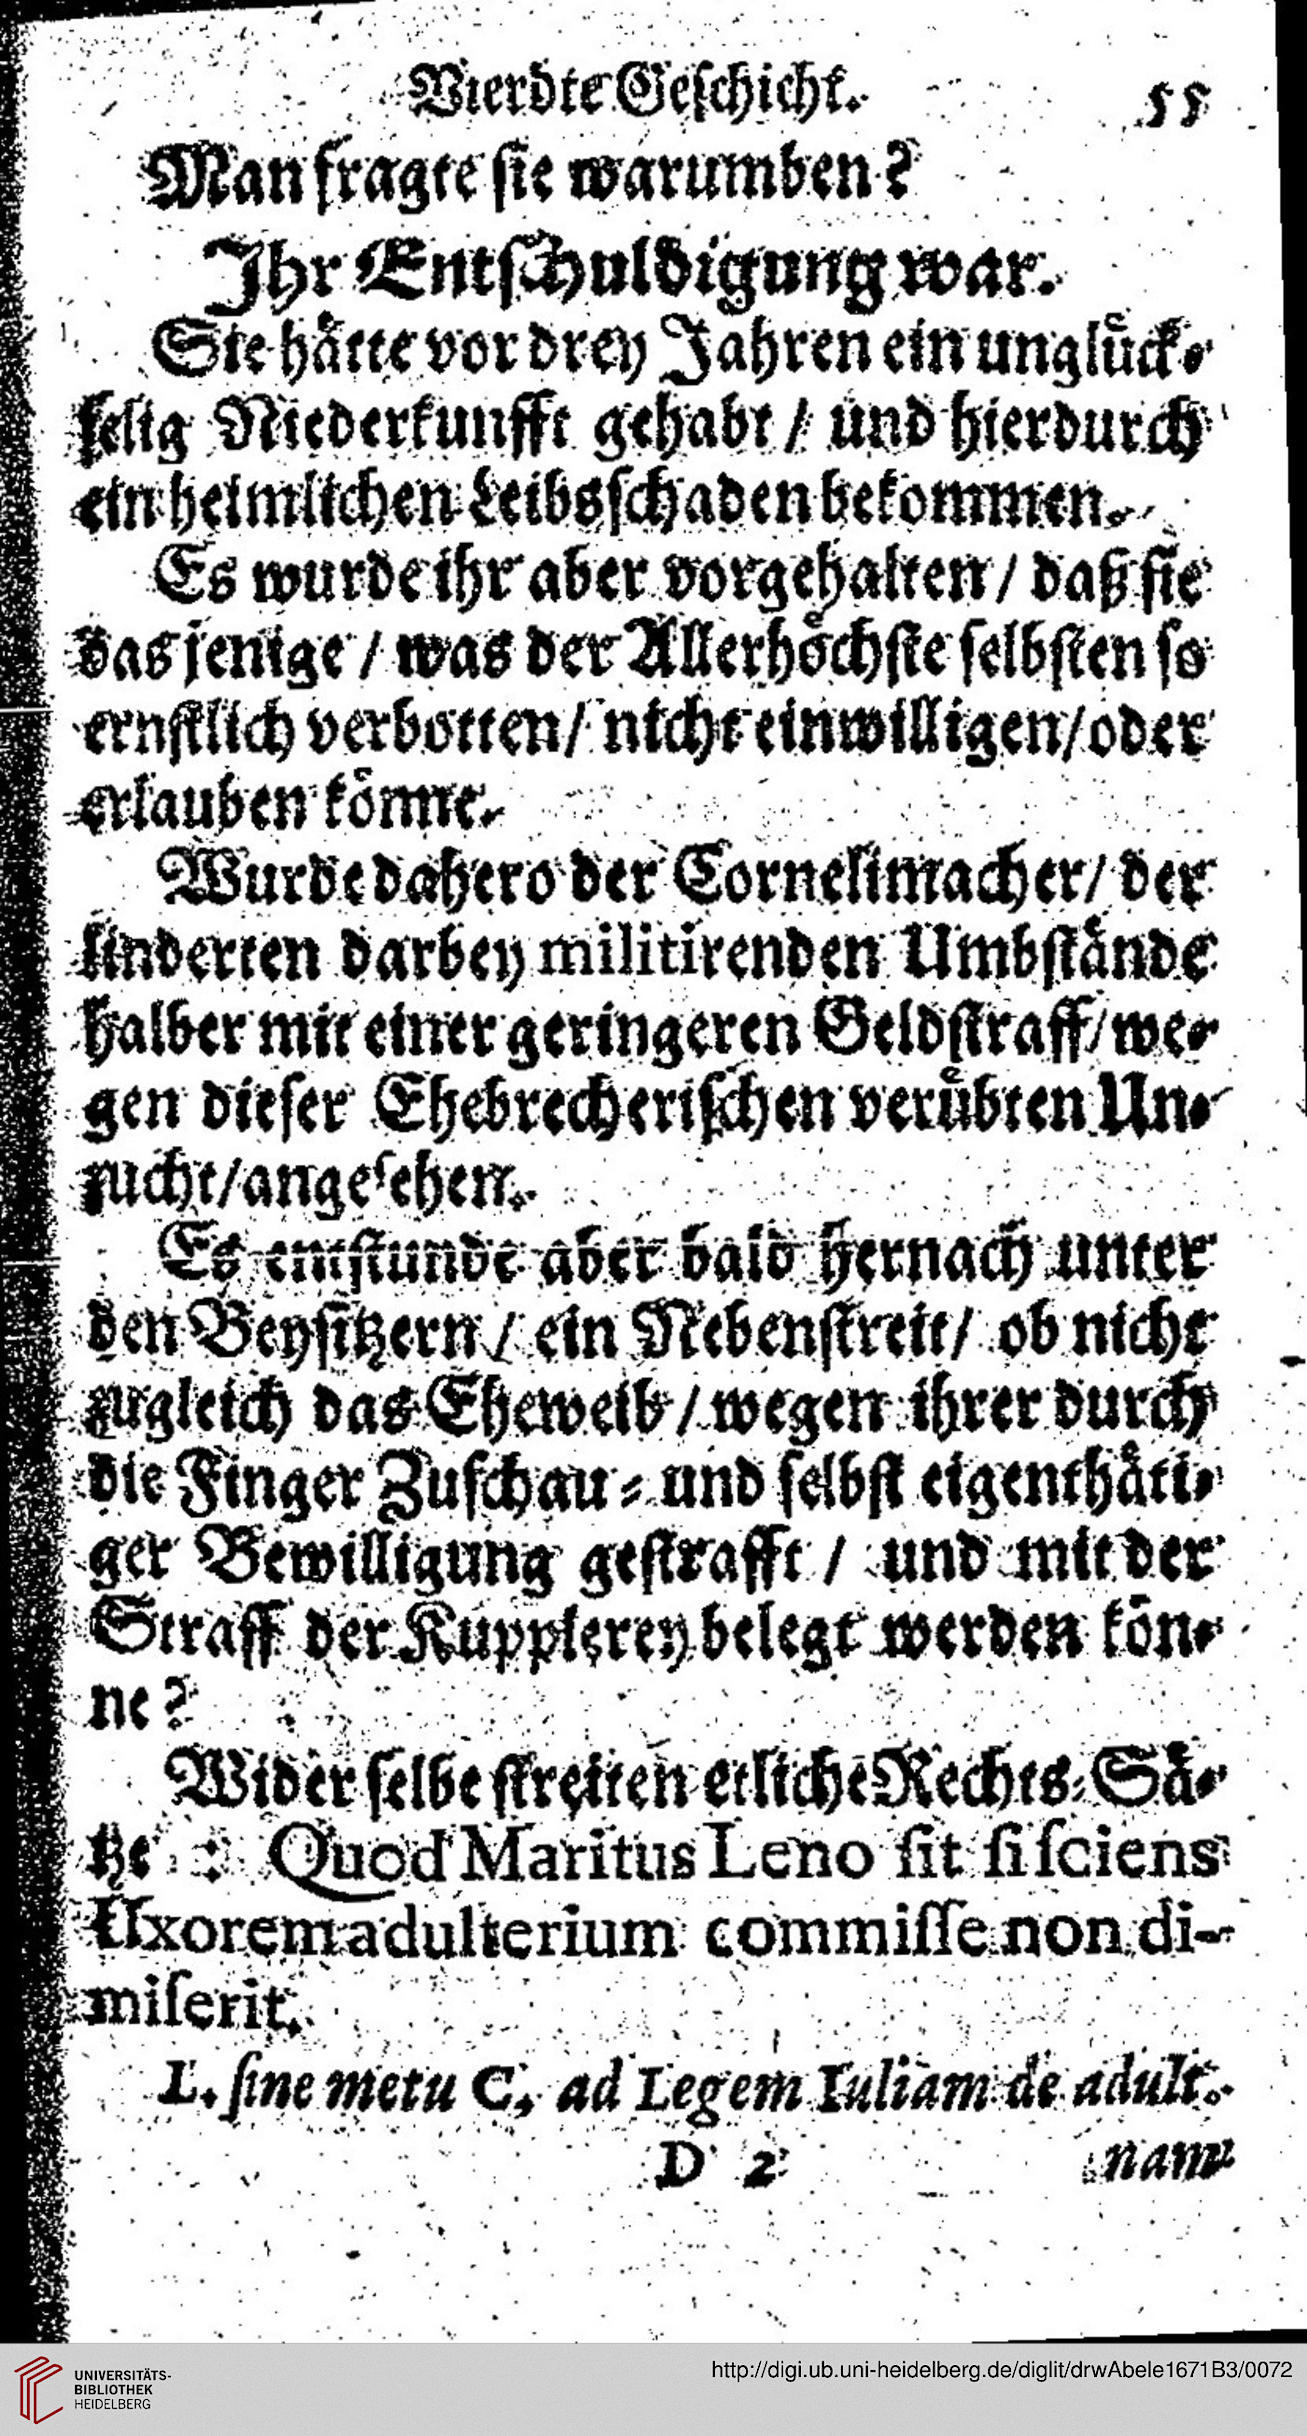 Vierdte Geſchicht. 55
Man fragte ſie warumben?
Ihr Entſchuldigung war.
Sie haͤtte vor drey Jahren ein ungluͤck⸗
ſelig Niederkunfft gehabt / und hierdurch
ein heimlichen Leibsſchaden bekommen.
Es wurde ihr aber vorgehalten / daß ſie
das jenige / was der Allerhoͤchſte ſelbſten ſo
ernſtlich verbotten / nicht einwilligen / oder
erlauben koͤnne.
Wurde dahero der Cornelimacher / der
linderten darbey militirenden Umbſtaͤnde
halber mit einer geringeren Geldſtraff / we⸗
gen dieſer Ehebrecheriſchen veruͤbten Un⸗
zucht / angeſehen.
Es entſtunde aber bald hernach unter
den Beyſitzern / ein Nebenſtreit / ob nicht
zugleich das Eheweib / wegen ihrer durch
die Finger Zuſchau⸗ und ſelbſt eigenthaͤti⸗
ger Bewilligung geſtrafft / und mit der
Straff der Kupplerey belegt werden koͤn⸗
ne?
Wider ſelbe ſtreiten etliche Rechts⸗Saͤ⸗
tze : Quod Maritus Leno ſit ſi ſciens
Uxorem adulterium commiſſe non di-
miſerit.
L. ſine metu C. ad Legem Iuliam de adult.
D 2 nam
UNIVERSITÄTS-
BIBLIOTHEK
HEIDELBERG
http://digi.ub.uni-heidelberg.de/diglit/drwAbele1671B3/0072